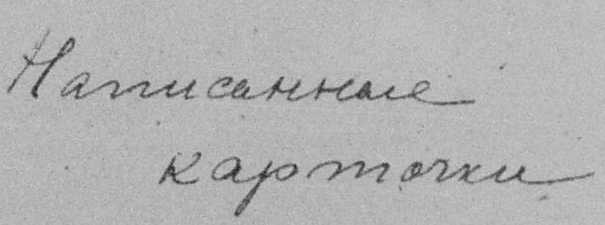 Написанные
карточки